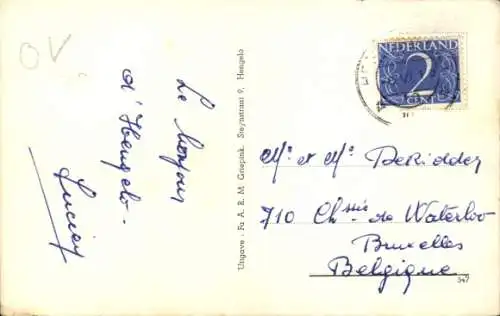 OV
Le bonjour
d'Hengelo.
Lucien
Uitgave: Fa A. R. M. Griepink. Steynstraat 9, Hengelo
NEDERLAND
2
CENT
Mr et Me DeRidder
710 Chssée de Waterloo
Bruxelles
Belgique
547